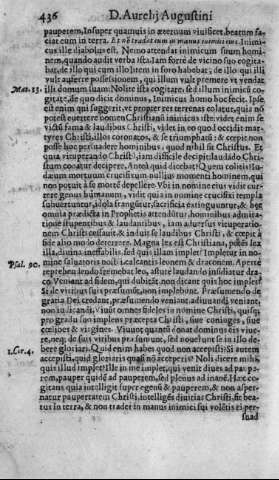 436 D. Aurelij Augustini
pauperem, Insuper quamuis in æternum viuificet, beatum fa-
ciat eum in terra. Et nō tradat eum in manus inimici eius. Inimi-
cus ille diabolus est. Nemo attendat inimicum suum homi-
nem, quando audit verba ista. Iam fortè de vicino suo cogita-
bat, de illo qui cum illo litem in foro habebat, de illo qui illi
vult auferre possessionem, qui illum vult premere vt vendat
Mat. 13. illi domum suam: Nolite ista cogitare, sed illum inimicū co-
gitate, de quo dicit dominus, Inimicus homo hoc fecit. Ipse
est enim qui suggerit, vt propter res terrenas colatur, quia nō
potest euertere nomen Christianū inimicus iste: videt enim se
victū fama & laudibus Christi, videt in eo quod occidit mar-
tyres Christi, illos coronatos, & se triumphatū: & cœpit non
posse persuadere hominibus, quod nihil sit Christus. Et
quia vituperando Christū, iam difficile decipit: laudādo Chri-
stum conatur decipere,
darum mortuum crucifixum nullius momenti hominem, qui
non potuit à se mortē depellere? Vbi in nomine eius vidit cur-
rere genus humanum, vidit quia in nomine crucifixi templa
subuertuntur, idola frangūtur, sacrificia extinguūtur, & hęc
omnia prædicta in Prophetis attendūtur, hominibus admira-
tione stupentibus & laudantibus, iam
nem Christi
fide alio mo lo deterrere. Magna lex est Christiana, potēs lex
illa, diuina ineffabilis, sed quis illam implet? Impleto in no-
mine saluatoris
Psal. 90. reprehendendo fremebat leo, astutè laudando insidiatur dra-
co. Veniant ad fidem, qui dubitāt, non dicant quis hoc implet?
Si de viribus suis præsumūt, non implebunt. Præsumēdo de
gratia Dei credant, præsumendo veniant, adiuuandi, veniant,
non iudicandi. Viuūt omnes fideles in nomine Christi, quisq;
pro gradu suo implens præcepta Christi, siue coniuges, siue
cœlibes & virgines. Viuunt quantū donat dominus eis viue-
re, neq; de suis viribus præsumunt, sed nouerunt se in illo de-
1. Cor. 4. bere gloriari. Quid enim habes quod non accepisti? Si autem
accepisti, quid gloriaris quasi nō acceperis? Noli dicere mihi,
quis illud implet? Ille in me implet, qui venit diues ad pau
rem, pauper quidē ad pauperem, sed plenus ad inanē. Hæc co-
gitans quia intelligit super egenū & pauperem, & non asper-
natur paupertatem Christi, intelligēs diuitias Christi, fit bea-
tus in terra, & non trader in manus inimici sui volētis ei per-
suad